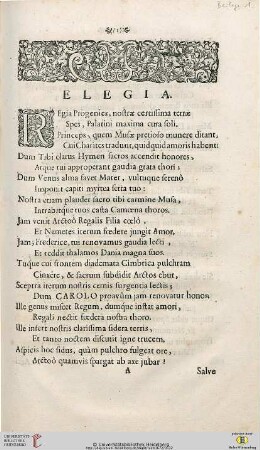 ELEGIA.
REgia Progenies, nostræ certissima terræ
Spes, Palatini maxima cura soli,
Princeps, quem Musæ pretioso munere ditant,
Cui Charites tradunt, quidquid amoris habent:
Dum Tibi clarus Hymen sacros accendit honores,
Atque tui approperant gaudia grata thori:
Dum Venus alma favet Mater, vultuque sereno
Imponit capiti myrtea serta tuo:
Nostra etiam plauder sacro tibi carmine Musa,
Intrabitque tuos casta Camœna thoros.
Jam venit Arctoô Regalis Filia cœlô,
Et Nemetes iterum fredere jungit Amor.
Jam, Frederice, tui renovamus gaudia lecti,
Et reddit thalamo Dania magna suos.
Tuque cui frontem diademata Cimbrica pulchram
Cinxêre, & sacrum subdidit Arctos ebut,
Sceptra iterum nostris cernis surgentia lectis;
Dum CAROLO proavûm jam renovatur honor.
Ille genus misset Regum, dumque instat amori,
Regali nectit fœdera nostra thoro.
Ille infert nostris clarissima sidera terris,
Et tanto nostem discutit igne trucem.
Aspicis hoc sidus, quàm pulchro fulgeat ore,
Arctoô quamvis spargat ab axe jubar?
A Salve
UNIVERSITÄTS-
BIBLIOTHEK
HEIDELBERG
© Universitätsbibliothek Heidelberg
gefördert durch
Baden-Württemberg